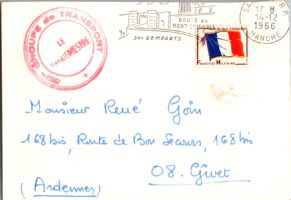 GROUPE de TRANSPORT
LE
VAGUEMESTRE
ROUTE du
MONT-
SES REMPARTS
17 H
14-12
1966
MANCHE
REPUBLIQUE FRANCAISE
FRANCHISE MILITAIRE
Monsieur René Goin
168 bis, Route de Bon Secours, 168 bis
08. Givet
(Ardennes)